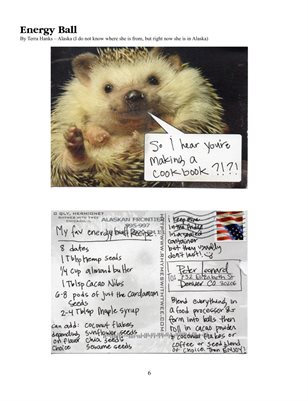 Energy Ball
By Terra Hanks – Alaska (I do not know where she is from, but right now she is in Alaska)
So I hear you're
making a
cookbook ?!?!
ALASKAN FRONTIER
995-997
My fav energy ball Recipe
8 dates
1 Tblsp Hemp seeds
1/4 cup almond butter
1 Tblsp Cacao Nibs
6-8 pods of just the Cardamom
Seeds
2-4 Tblsp Maple syrup
can add: coconut flakes
depending sunflower seeds
on flavor chia seeds
choice sesame seeds
I keep mine
in the fridge
in a sealed
container
but they usually
don't last!
Peter Leonard
Denver CO
Blend everything in
a food processor &
form into balls then
roll in cacao powder
& coconut flakes or
coffee or seed blend
of choice. Then ENJOY!
6